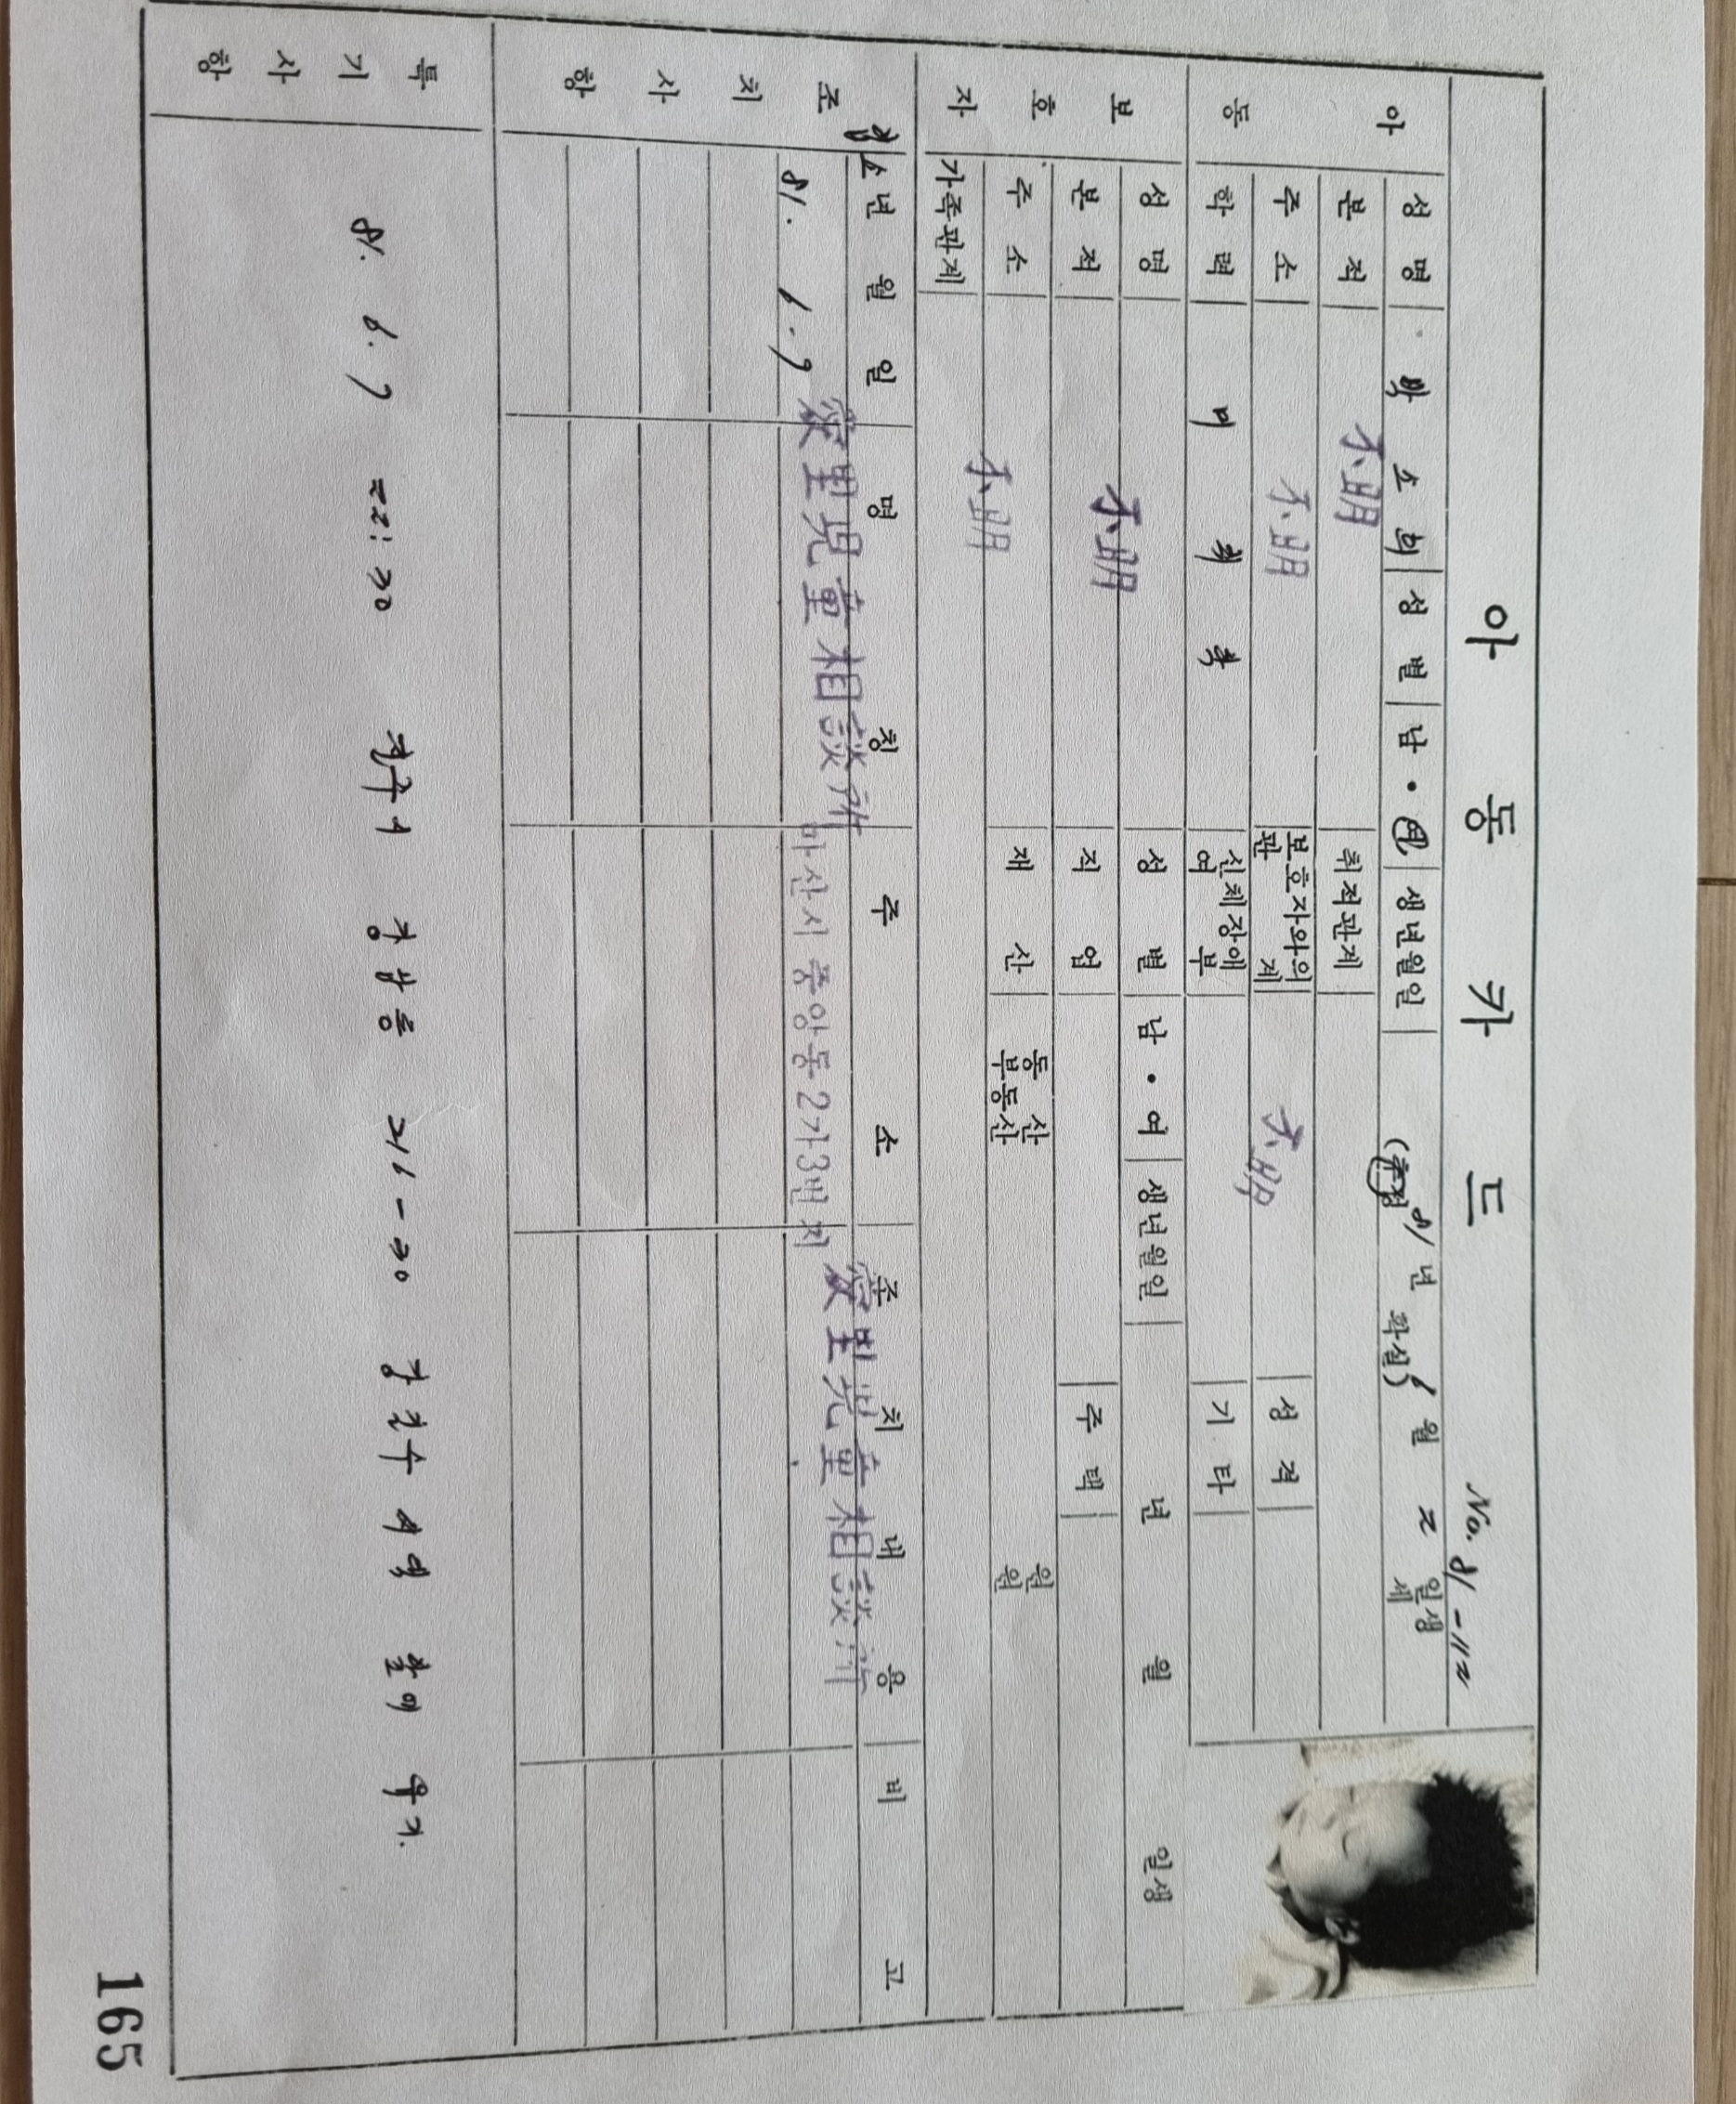 아동카드
No. 81-112
아동
성명 박소희 성별 남·여 생년월일 81년 6월 2일생
(추정 확실) 세
본적 不明 취적관계
주소 不明 보호자와의 관계 不明 성격
학력 미취학 신체장애여부 기타
보호자
성명 不明 성별 남·여 생년월일 년 월 일생
본적 직업 주택
주소 不明 재산 동산 원
부동산 원
가족관계
조치사항
년월일 명칭 주소 조치내용 비고
81. 6. 7 愛里兒童相談所 마산시 중앙동2가3번지 愛里児童相談所
특기사항
81. 6. 7 22:30 진주시 강남동 216-30 강진수
165